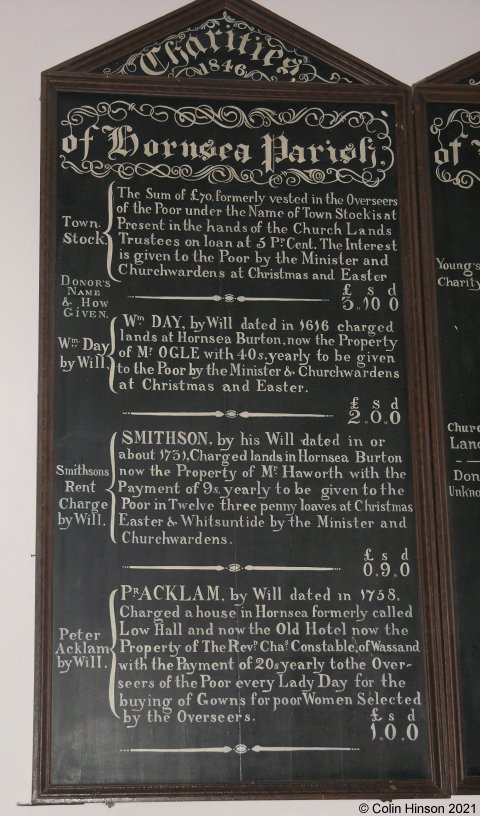 Charities
1846
of Hornsea Parish.
Town
Stock
The Sum of £70, formerly vested in the Overseers
of the Poor under the Name of Town Stock is at
Present in the hands of the Church Lands
Trustees on loan at 5 Pr Cent. The Interest
is given to the Poor by the Minister and
Churchwardens at Christmas and Easter
£ s d
3,, 10 0
Donor's
Name
& How
Given.
Wm Day
by Will.
Wm DAY, by Will dated in 1616 charged
lands at Hornsea Burton, now the Property
of Mr OGLE with 40s, yearly to be given
to the Poor by the Minister & Churchwardens
at Christmas and Easter.
£ s d
2,, 0,, 0
Smithsons
Rent
Charge
by Will.
SMITHSON, by his Will dated in or
about 1731, Charged lands in Hornsea Burton
now the Property of Mr Haworth with the
Payment of 9s, yearly to be given to the
Poor in Twelve three penny loaves at Christmas
Easter & Whitsuntide by the Minister and
Churchwardens.
£ s d
0,, 9,, 0
Peter
Acklam
by Will.
Pr ACKLAM, by Will dated in 1758,
Charged a house in Hornsea formerly called
Low Hall and now the Old Hotel now the
Property of The Revd Chas Constable, of Wassand
with the Payment of 20s yearly to the Over-
seers of the Poor every Lady Day for the
buying of Gowns for poor Women Selected
by the Overseers.
£ s d
1,, 0,, 0
of
Young's
Charity
Churc
Land
Don
Unkno
© Colin Hinson 2021